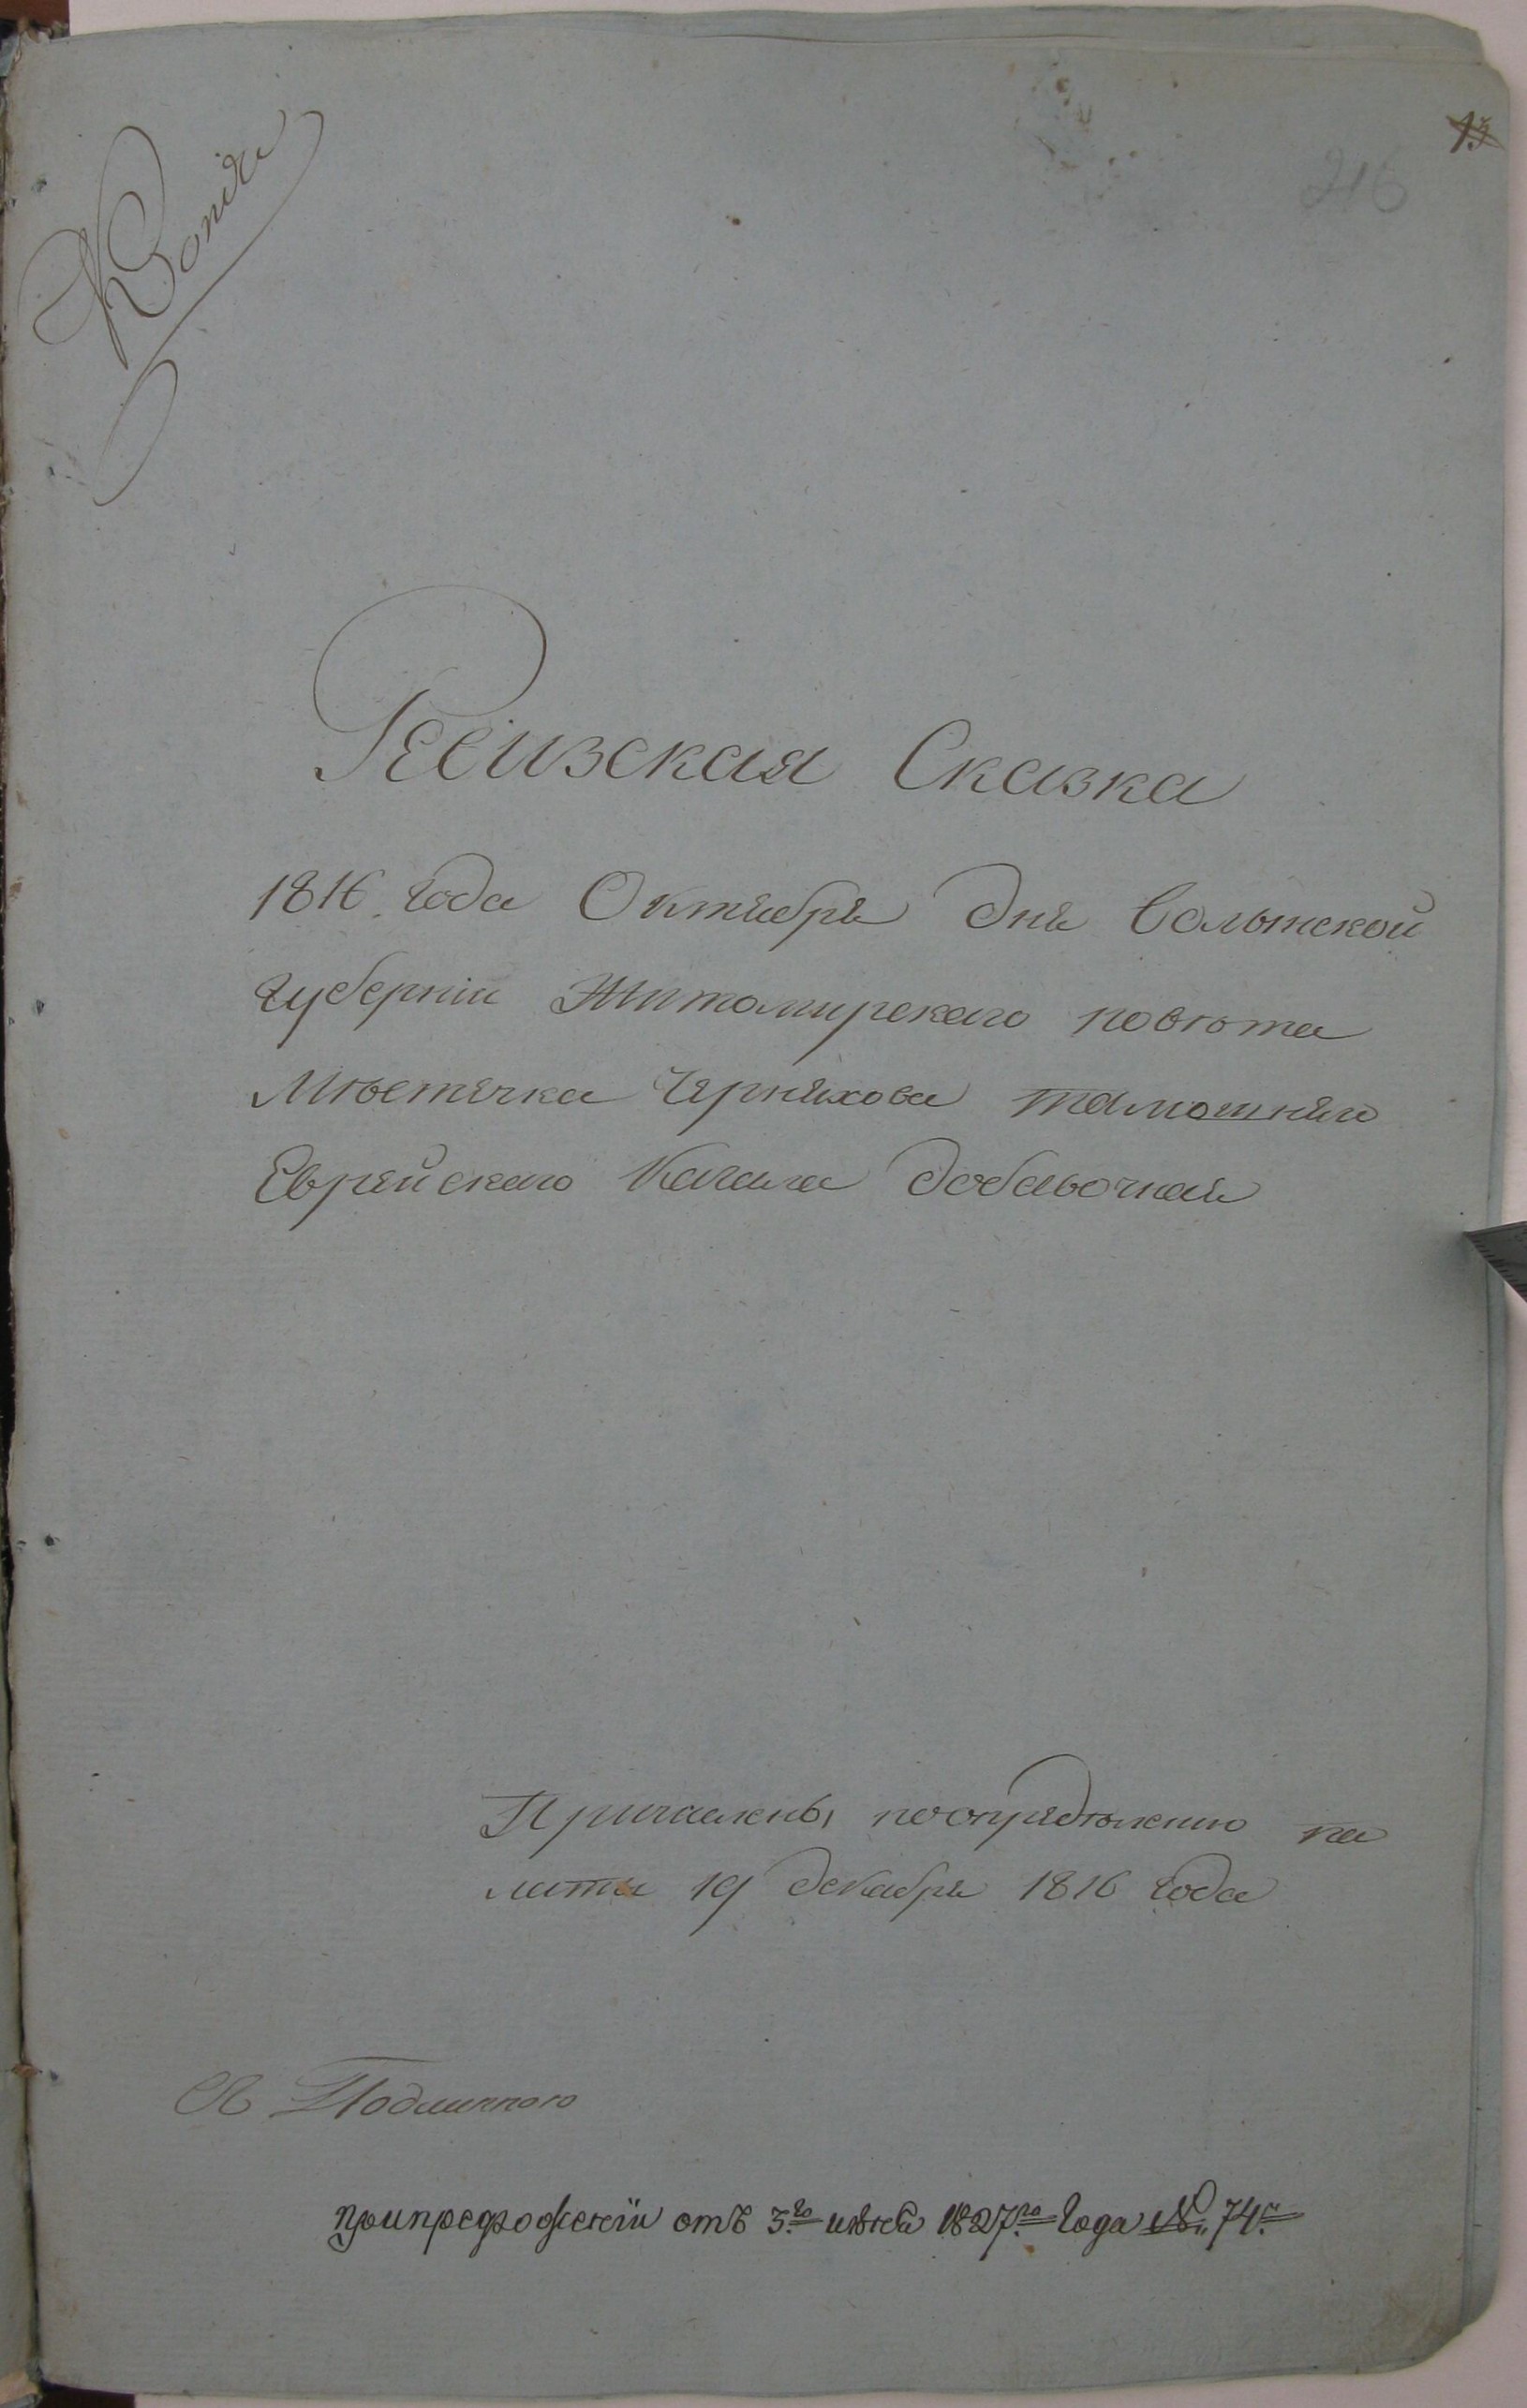 Копія
216
Ревизская Сказка
1816 года Октября дня Волынской
губерніи Житомирскаго повѣта
Мѣстечка Черняхова тамошняго
Еврейскаго Кагала добавочная
Причислены поопредѣлению па
латы 19 декабря 1816 года
Съ Подлинного
припредложеніи отъ 3.го 1827.го Года № 74.